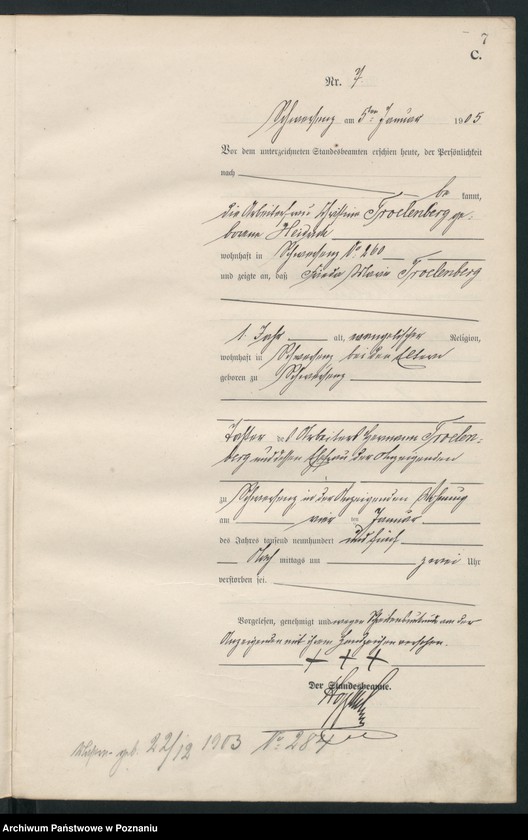 7
C.
Nr. 7
Schwersenz am 5ten Januar 1905
Vor dem unterzeichneten Standesbeamten erschien heute, der Persönlichkeit
nach be kannt,
die Arbeiterfrau Christine Troelenberg ge-
borene
wohnhaft in Schwersenz No 260
und zeigte an, daß Frieda Marie Troelenberg
1 Jahr alt, evangelischer Religion,
wohnhaft in Schwersenz bei den Eltern
geboren zu Schwersenz
Tochter des Arbeiters Hermann Troelen-
berg und dessen Ehefrau der Anzeigenden
zu Schwersenz in der Anzeigenden Wohnung
am vier ten Januar
des Jahres tausend neunhundert und fünf
Nach mittags um zwei Uhr
verstorben sei.
Vorgelesen, genehmigt und wegen Schreibensunkunde von der
Anzeigenden mit ihrem Handzeichen versehen.
+ + +
Der Standesbeamte.
geb. 22/12 1903 No 284
Archiwum Państwowe w Poznaniu